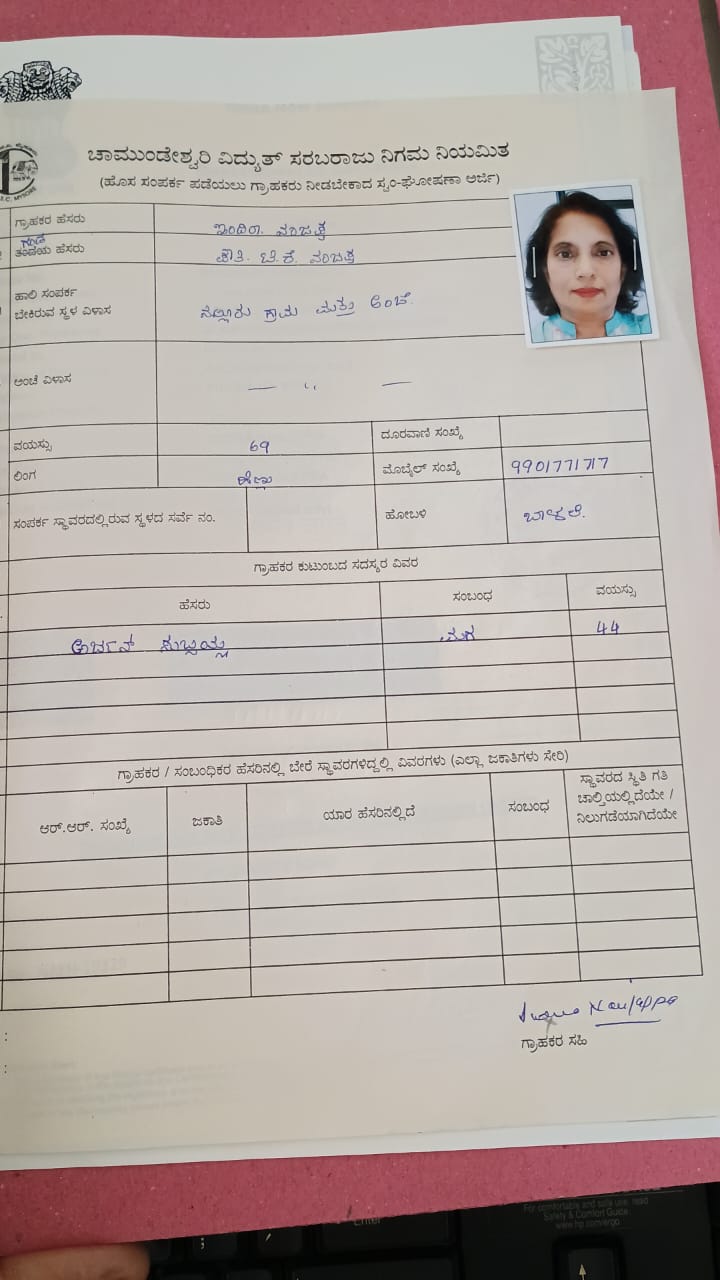 ಚಾಮುಂಡೇಶ್ವರಿ ವಿದ್ಯುತ್ ಸರಬರಾಜು ನಿಗಮ ನಿಯಮಿತ
(ಹೊಸ ಸಂಪರ್ಕ ಪಡೆಯಲು ಗ್ರಾಹಕರು ನೀಡಬೇಕಾದ ಸ್ವಂ-ಘೋಷಣಾ ಅರ್ಜಿ)
ಗ್ರಾಹಕರ ಹೆಸರು ಇಂದಿರಾ ನಂಜಪ್ಪ
ಗಂಡ
ತಂದೆಯ ಹೆಸರು ಬಿ.ಕೆ. ನಂಜಪ್ಪ
ಹಾಲಿ ಸಂಪರ್ಕ
ಬೇಕಿರುವ ಸ್ಥಳ ವಿಳಾಸ ನಲ್ಲೂರು ಗ್ರಾಮ ಮತ್ತು ಅಂಚೆ.
ಅಂಚೆ ವಿಳಾಸ — ,, —
ವಯಸ್ಸು 69 ದೂರವಾಣಿ ಸಂಖ್ಯೆ
ಲಿಂಗ ಹೆಣ್ಣು ಮೊಬೈಲ್ ಸಂಖ್ಯೆ 9901771717
ಸಂಪರ್ಕ ಸ್ಥಾವರದಲ್ಲಿರುವ ಸ್ಥಳದ ಸರ್ವೆ ನಂ. ಹೋಬಳಿ ಬಾಳೆಲೆ.
ಗ್ರಾಹಕರ ಕುಟುಂಬದ ಸದಸ್ಯರ ವಿವರ
ಹೆಸರು ಸಂಬಂಧ ವಯಸ್ಸು
ಅರ್ಜುನ್ ಸುಬ್ಬಯ್ಯ ಮಗ 44
ಗ್ರಾಹಕರ / ಸಂಬಂಧಿಕರ ಹೆಸರಿನಲ್ಲಿ ಬೇರೆ ಸ್ಥಾವರಗಳಿದ್ದಲ್ಲಿ ವಿವರಗಳು (ಎಲ್ಲಾ ಜಕಾತಿಗಳು ಸೇರಿ)
ಆರ್.ಆರ್. ಸಂಖ್ಯೆ ಜಕಾತಿ ಯಾರ ಹೆಸರಿನಲ್ಲಿದೆ ಸಂಬಂಧ ಸ್ಥಾವರದ ಸ್ಥಿತಿ ಗತಿ
ಚಾಲ್ತಿಯಲ್ಲಿದೆಯೇ /
ನಿಲುಗಡೆಯಾಗಿದೆಯೇ
Nanjappa
ಗ್ರಾಹಕರ ಸಹಿ
For comfortable and safe use, read
Safety & Comfort Guide
www.hp.com/ergo